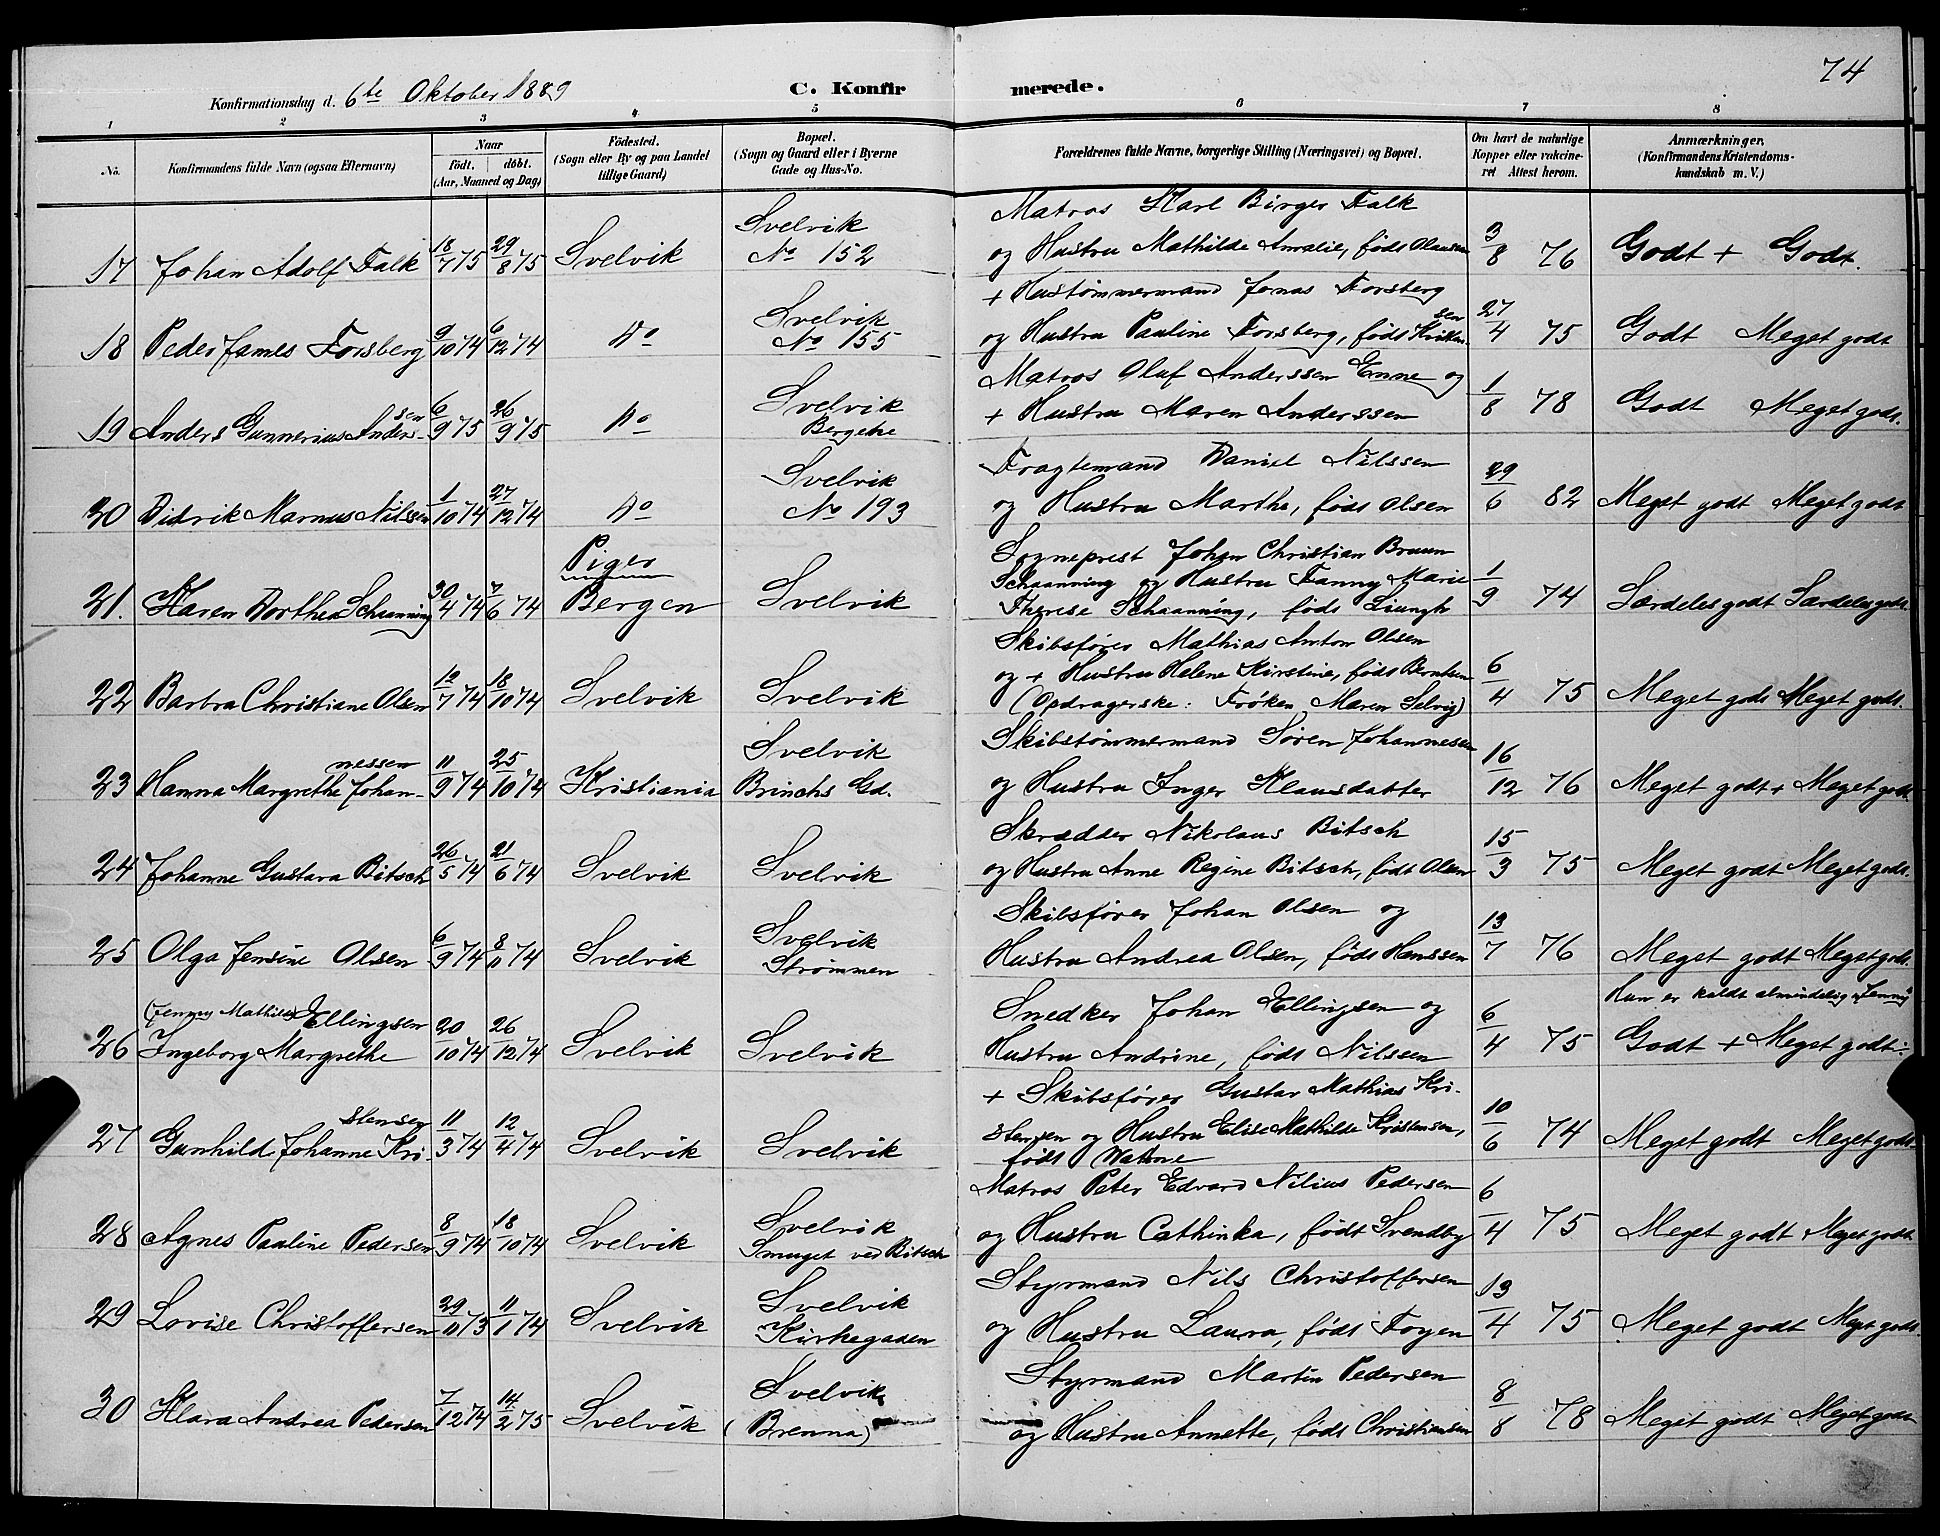 74
Konfirmationsdag d. 6te Oktober 1889 C. Konfirmerede.
1 2 3 4 5 6 7 8
No. Konfirmandens fulde Navn (ogsaa Efternavn) Naar Født. døbt. (Aar, Maaned og Dag) Fødested. (Sogn eller By og paa Landet tillige Gaard) Bopæl. (Sogn og Gaard eller i Byerne Gade og Hus-No. Forældrenes fulde Navne, borgerlige Stilling (Næringsvei) og Bopæl. Om havt de naturlige Kopper eller vakcineret Attest herom. Anmærkninger. (Konfirmandens Kristendomskundskab m. V.)
17 Johan Adolf Falk 18/7 75 29/8 75 Svelvik Svelvik No 152 Matros Karl Birger Falk
og Hustru Mathilde Amalie, født Olausen 3/8 76 Godt + Godt.
18 Peder James Forsberg 9/10 74 6/12 74 Do Svelvik No 155 + Hustømmermand Jonas Forsberg
og Hustru Pauline Forsberg, født Kristensen 27/4 75 Godt Meget godt
19 Anders Gunnerius Anderssen 6/9 75 26/9 75 Do Svelvik Bergene Matros Oluf Anderssen Enne og
+ Hustru Maren Anderssen 1/8 78 Godt Meget godt.
20 Didrik Marnus Nilssen 1/10 74 27/12 74 Do Svelvik No 193 Fragtemand Daniel Nilssen
og Hustru Marthe, født Olsen 29/6 82 Meget godt Meget godt
Piger
21. Karen Dorthea Schaanning 30/4 74 7/6 74 Bergen Svelvik Sogneprest Johan Christian Bruun
Schaanning og Hustru Fanny Marie
Therese Schaanning, født Liungh 1/9 74 Særdeles godt Særdeles godt.
22 Barbra Christiane Olsen 12/7 74 18/10 74 Svelvik Svelvik Skibsfører Mathias Anton Olsen
og + Hustru Helene Kirstine, født Berntsen
(Opdragerske: Frøken Maren Selvig) 6/4 75 Meget godt Meget godt.
23 Hanna Margrethe Johannessen 11/9 74 25/10 74 Kristiania Svelvik Brinchs Gd. Skibstømmermand Søren Johannesen
og Hustru Inger Klausdatter 16/12 76 Meget godt + Meget godt.
24 Johanne Gustava Bitsch 26/5 74 21/6 74 Svelvik Svelvik Skrædder Nikolaus Bitsch
og Hustru Anne Regine Bitsch, født Olsen 15/3 75 Meget godt Meget godt.
25 Olga Jensine Olsen 6/9 74 8/11 74 Svelvik Svelvik Strømmen Skibsfører Johan Olsen og
Hustru Andrea Olsen, født Hanssen 13/7 76 Meget godt Meget godt.
Hun er kaldt almindelig "Jenny"
(Jenny Mathilde) Ellingsen
26 Ingeborg Margrethe 20/10 74 26/12 74 Svelvik Svelvik Snedker Johan Ellingsen og
Hustru Andrine, født Nilssen 6/4 75 Godt + Meget godt.
27 Gunhild Johanne Kristensen 11/3 74 12/4 74 Svelvik Svelvik + Skibsfører Gustav Mathias Kristensen og Hustru Elise Mathilde Kristensen,
født Watne 10/6 74 Meget godt Meget godt
28 Agnes Pauline Pedersen 8/9 74 18/10 74 Svelvik Svelvik Smuget ved Bitsch Matros Peter Edvard Nilius Pedersen
og Hustru Cathinka, født Svendby 6/4 75 Meget godt Meget godt
29 Lovise Christoffersen 29/11 73 11/1 74 Svelvik Svelvik Kirkegaden Styrmand Nils Christoffersen
og Hustru Laura, født Foyen 13/4 75 Meget godt Meget godt.
30 Klara Andrea Pedersen 7/12 74 14/2 75 Svelvik Svelvik (Brenna) Styrmand Martin Pedersen
og Hustru Annette, født Christiansen 8/8 78 Meget godt Meget godt